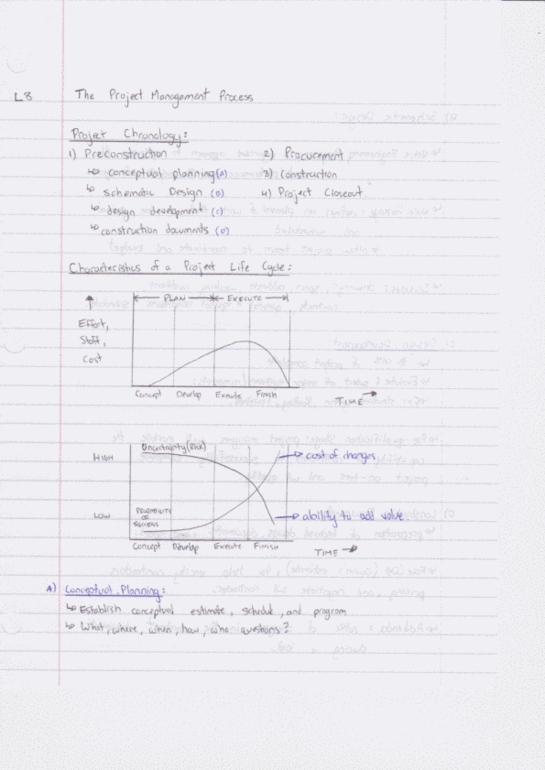 L8 The Project Management Process
Project Chronology:
1) Preconstruction 2) Procurement
↳ conceptual planning (A) 3) Construction
↳ schematic Design (B) 4) Project Closeout
↳ design development (C)
↳ construction documents (D)
Characteristics of a Project Life Cycle:
PLAN EXECUTE
Effort,
Staff,
Cost
Concept Develop Execute Finish
TIME →
Uncertainty (Risk)
HIGH → cost of changes
PROBABILITY
OF
SUCCESS
LOW → ability to add value
Concept Develop Execute Finish
TIME →
A) Conceptual Planning:
↳ Establish conceptual estimate, schedule, and program
↳ What, where, when, how, who questions?